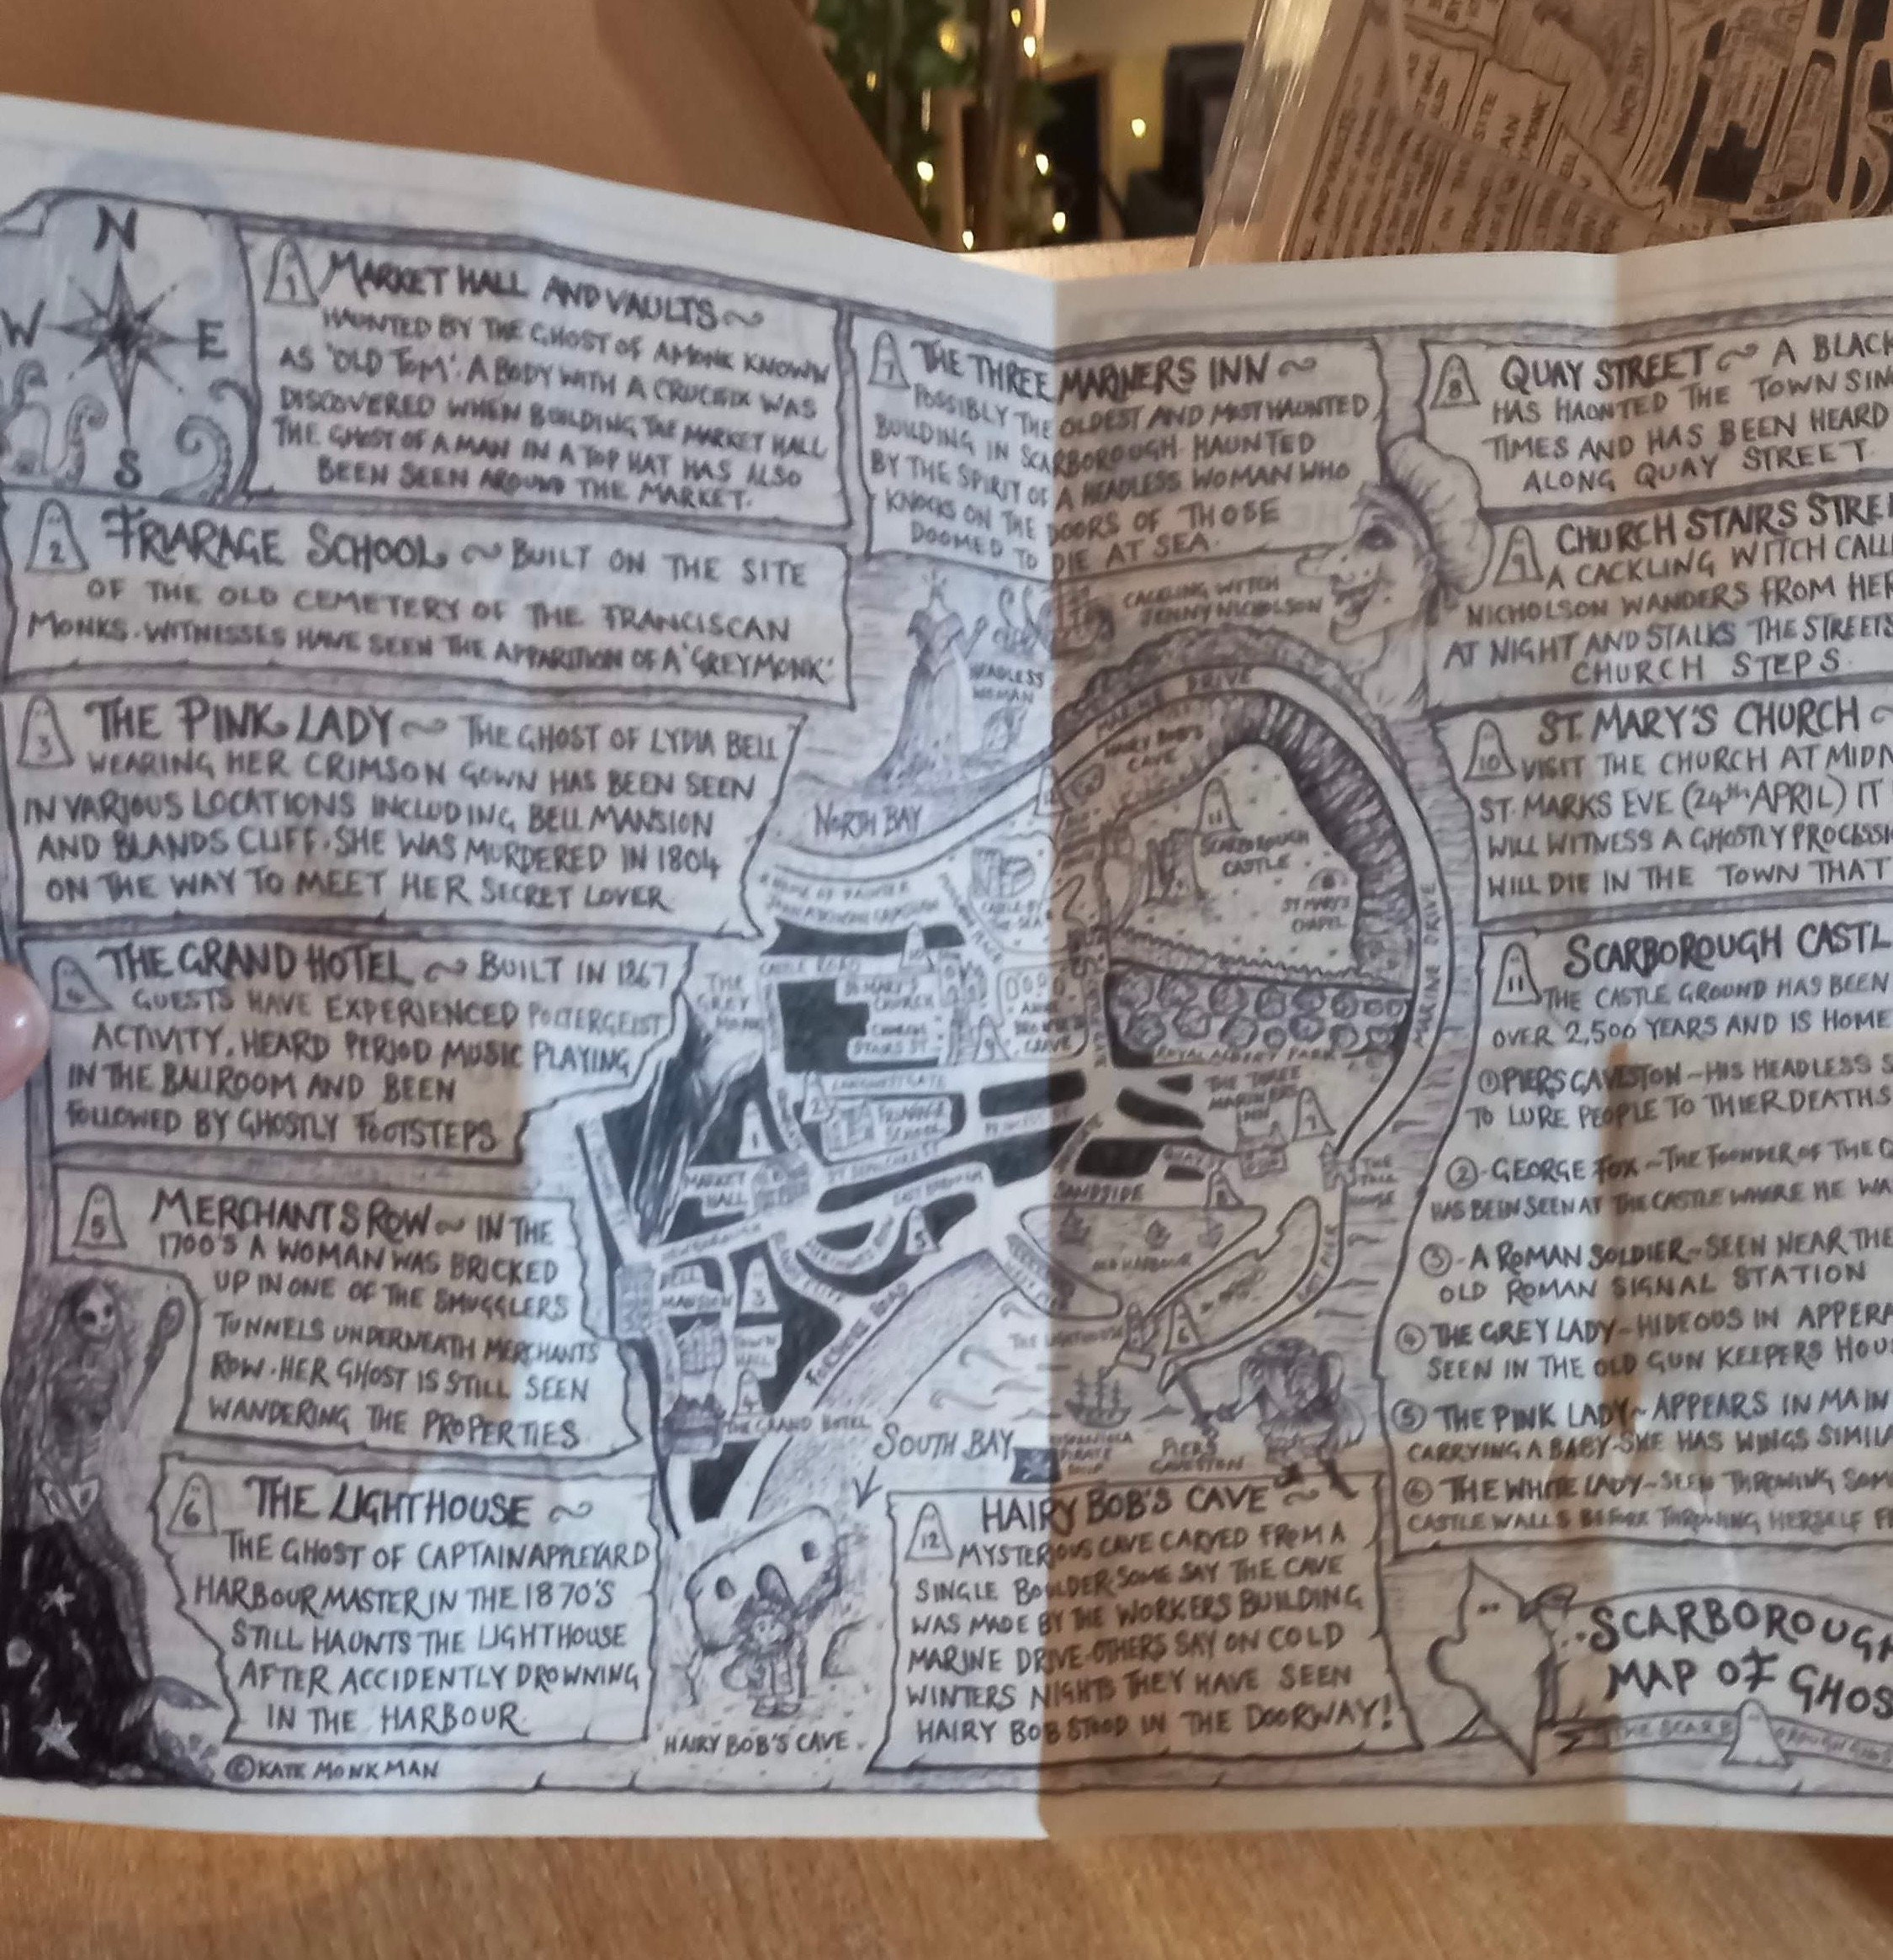 N
W E
S
1 MARKET HALL AND VAULTS ~
HAUNTED BY THE GHOST OF A MONK KNOWN
AS 'OLD TOM'. A BODY WITH A CRUCIFIX WAS
DISCOVERED WHEN BUILDING THE MARKET HALL
THE GHOST OF A MAN IN A TOP HAT HAS ALSO
BEEN SEEN AROUND THE MARKET.
2 FRIARAGE SCHOOL ~ BUILT ON THE SITE
OF THE OLD CEMETERY OF THE FRANCISCAN
MONKS. WITNESSES HAVE SEEN THE APPARITION OF A 'GREY MONK'
3 THE PINK LADY ~ THE GHOST OF LYDIA BELL
WEARING HER CRIMSON GOWN HAS BEEN SEEN
IN VARIOUS LOCATIONS INCLUDING BELL MANSION
AND BLANDS CLIFF. SHE WAS MURDERED IN 1804
ON THE WAY TO MEET HER SECRET LOVER.
4 THE GRAND HOTEL ~ BUILT IN 1867
GUESTS HAVE EXPERIENCED POLTERGEIST
ACTIVITY, HEARD PERIOD MUSIC PLAYING
IN THE BALLROOM AND BEEN
FOLLOWED BY GHOSTLY FOOTSTEPS
5 MERCHANTS ROW ~ IN THE
1700'S A WOMAN WAS BRICKED
UP IN ONE OF THE SMUGGLERS
TUNNELS UNDERNEATH MERCHANTS
ROW. HER GHOST IS STILL SEEN
WANDERING THE PROPERTIES.
6 THE LIGHTHOUSE ~
THE GHOST OF CAPTAIN APPLEYARD
HARBOUR MASTER IN THE 1870'S
STILL HAUNTS THE LIGHTHOUSE
AFTER ACCIDENTLY DROWNING
IN THE HARBOUR.
©KATE MONKMAN
7 THE THREE MARINERS INN ~
POSSIBLY THE OLDEST AND MOST HAUNTED
BUILDING IN SCARBOROUGH. HAUNTED
BY THE SPIRIT OF A HEADLESS WOMAN WHO
KNOCKS ON THE DOORS OF THOSE
DOOMED TO DIE AT SEA.
CACKLING WITCH
JENNY NICHOLSON
HEADLESS
WOMAN
MARINE DRIVE
HAIRY BOB'S
CAVE
NORTH BAY
11
SCARBOROUGH
CASTLE
ST MARY'S
CHAPEL
MARINE DRIVE
CASTLE ROAD
10
ST MARY'S
CHURCH
CHURCH
STAIRS ST
9
THE
GREY
MONK
ROYAL ALBERT PARK
LONGWESTGATE
2
FRIARAGE
SCHOOL
THE THREE
MARINERS
INN
7
1
MARKET
HALL
EASTBOROUGH
SANDSIDE
8
5
OLD HARBOUR
BELL
MANSION
3
TOWN
HALL
FORESHORE ROAD
THE LIGHTHOUSE
6
4
THE GRAND HOTEL
SOUTH BAY
HISPANIOLA
PIRATE
SHIP
PIERS
GAVESTON
HAIRY BOB'S CAVE.
12 HAIRY BOB'S CAVE ~
MYSTERIOUS CAVE CARVED FROM A
SINGLE BOULDER. SOME SAY THE CAVE
WAS MADE BY THE WORKERS BUILDING
MARINE DRIVE. OTHERS SAY ON COLD
WINTERS NIGHTS THEY HAVE SEEN
HAIRY BOB STOOD IN THE DOORWAY!
8 QUAY STREET ~ A BLACK
HAS HAUNTED THE TOWN SIN
TIMES AND HAS BEEN HEARD
ALONG QUAY STREET.
9 CHURCH STAIRS STREE
A CACKLING WITCH CALL
NICHOLSON WANDERS FROM HER
AT NIGHT AND STALKS THE STREETS
CHURCH STEPS.
10 ST. MARY'S CHURCH ~
VISIT THE CHURCH AT MIDN
ST. MARKS EVE (24th APRIL) IT
WILL WITNESS A GHOSTLY PROCESSI
WILL DIE IN THE TOWN THAT
11 SCARBOROUGH CASTL
THE CASTLE GROUND HAS BEEN
OVER 2,500 YEARS AND IS HOME
① PIERS GAVESTON - HIS HEADLESS S
TO LURE PEOPLE TO THIER DEATHS
② - GEORGE FOX - THE FOUNDER OF THE Q
HAS BEEN SEEN AT THE CASTLE WHERE HE WA
③ - A ROMAN SOLDIER - SEEN NEAR THE
OLD ROMAN SIGNAL STATION
④ THE GREY LADY - HIDEOUS IN APPERA
SEEN IN THE OLD GUN KEEPERS HOU
⑤ THE PINK LADY ~ APPEARS IN MAIN
CARRYING A BABY. SHE HAS WINGS SIMILA
⑥ THE WHITE LADY - SEEN THROWING SOM
CASTLE WALLS BEFORE THROWING HERSELF F
SCARBOROUGH
MAP OF GHOS